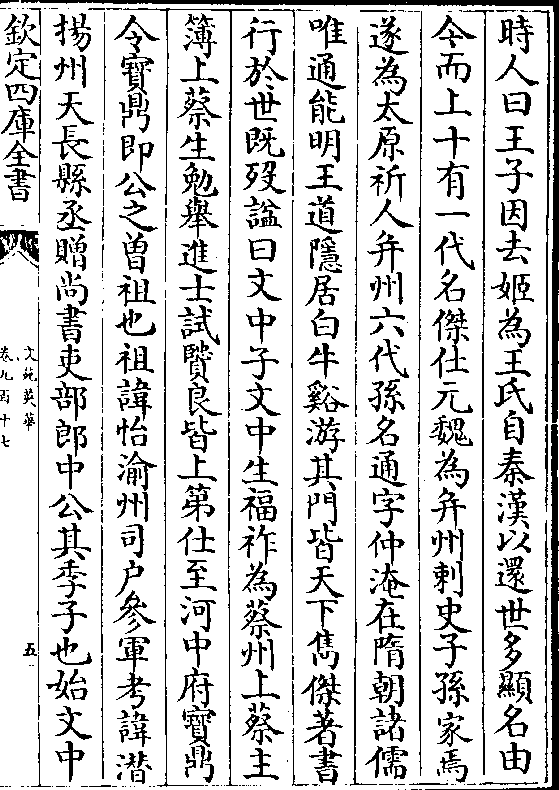 時人曰王子因去姬為王氏自秦漢以還世多顯名由
今而上十有一代名傑仕元魏為并州刺史子孫家焉
遂為太原祈人并州六代孫名通字仲淹在隋朝諸儒
唯通能明王道隱居白牛谿游其門皆天下雋傑著書
行於世既歿諡曰文中子文中生福祚為蔡州上蔡主
簿上蔡生勉舉進士試賢良皆上第仕至河中府寶鼎
令寶鼎即公之曾祖也祖諱怡渝州司户參軍考諱潜
揚州天長縣丞贈尚書吏部郎中公其季子也始文中
欽定四庫全書
文苑英華
卷九百十七
五